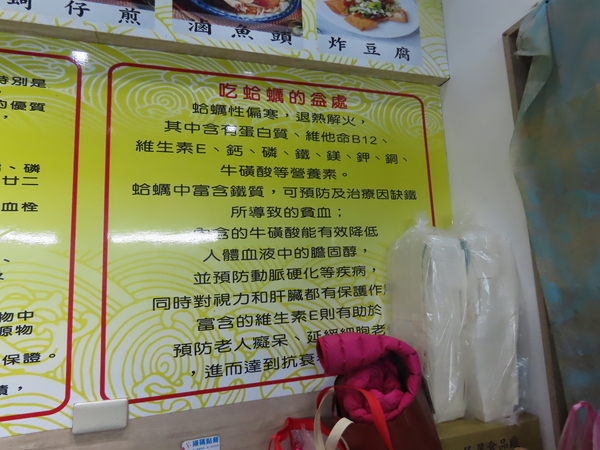 蚵仔煎
滷魚頭
炸豆腐
特別是
的優質
磷
廿二
血栓
物中
原物
保證。
吃蛤蠣的益處
蛤蠣性偏寒，退熱解火，
其中含有蛋白質、維他命B12、
維生素E、鈣、磷、鐵、鎂、鉀、銅、
牛磺酸等營養素。
蛤蠣中富含鐵質，可預防及治療因缺鐵
所導致的貧血；
內含的牛磺酸能有效降低
人體血液中的膽固醇，
並預防動脈硬化等疾病，
同時對視力和肝臟都有保護作
富含的維生素E則有助於
預防老人癡呆、延緩細胞老
，進而達到抗衰